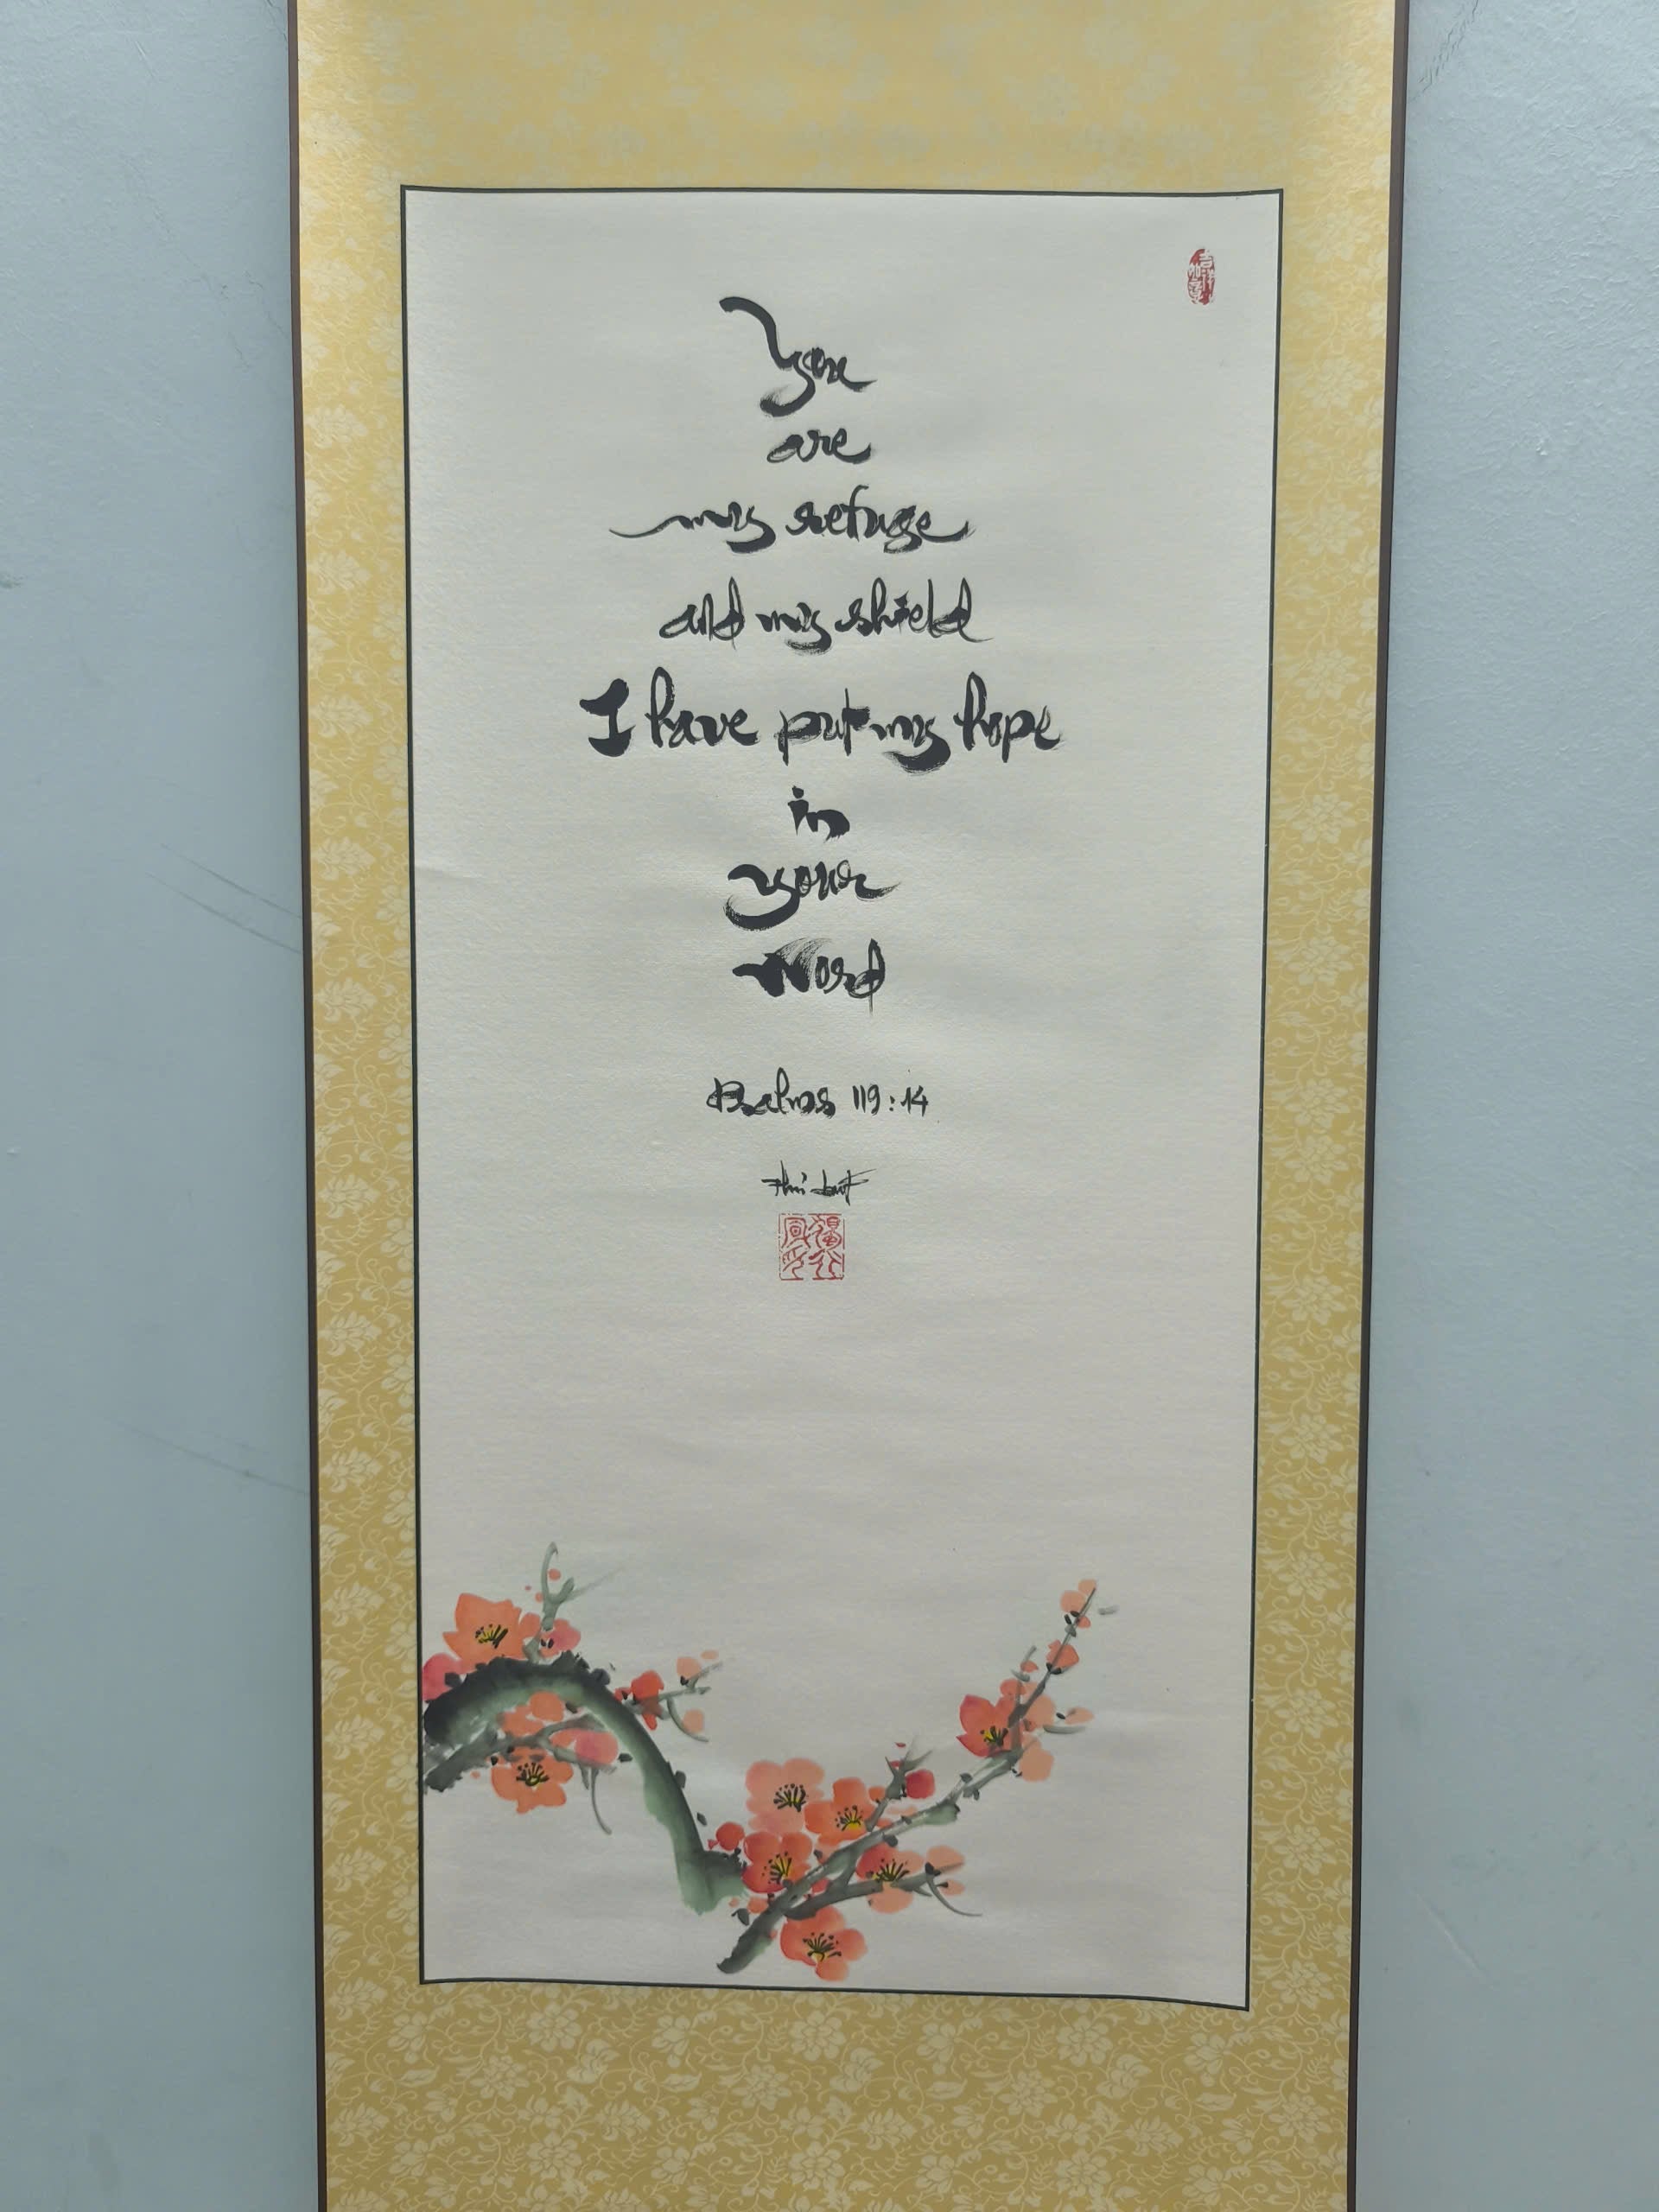 吉祥
如意
You
are
my refuge
and my shield
I have put my hope
in
your
Word
Psalms 119:14